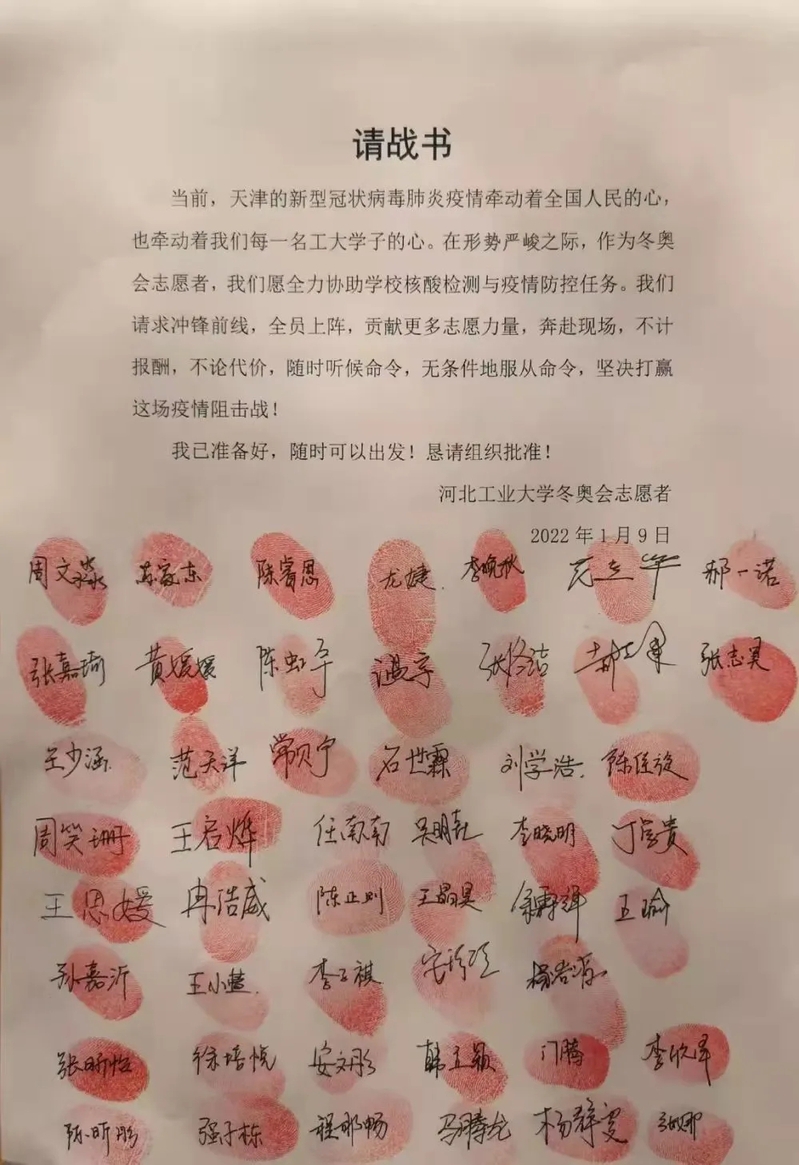 请战书
当前，天津的新型冠状病毒肺炎疫情牵动着全国人民的心，
也牵动着我们每一名工大学子的心。在形势严峻之际，作为冬奥
会志愿者，我们愿全力协助学校核酸检测与疫情防控任务。我们
请求冲锋前线，全员上阵，贡献更多志愿力量，奔赴现场，不计
报酬，不论代价，随时听候命令，无条件地服从命令，坚决打赢
这场疫情阻击战！
我已准备好，随时可以出发！恳请组织批准！
河北工业大学冬奥会志愿者
2022年1月9日
周文淼 苏家东 陈睿思 尤婕 李晚秋 郝一诺
张嘉琦 黄媛媛 温宇 张志昊
王少涵 范天洋 常贝宁 石世霖 刘学浩 陈佳旋
周笑珊 王启烨 任南南 吴明哲 李晓明
王思媛 冉浩威 陈正则 王晶昊 王瑜
孙嘉沂 王小慧 李子祺
张昕怡 徐培悦 安文彤 韩立颖 门腾 李欣泽
陈昕彤 强子栋 程那畅 马腾龙 杨舒雯